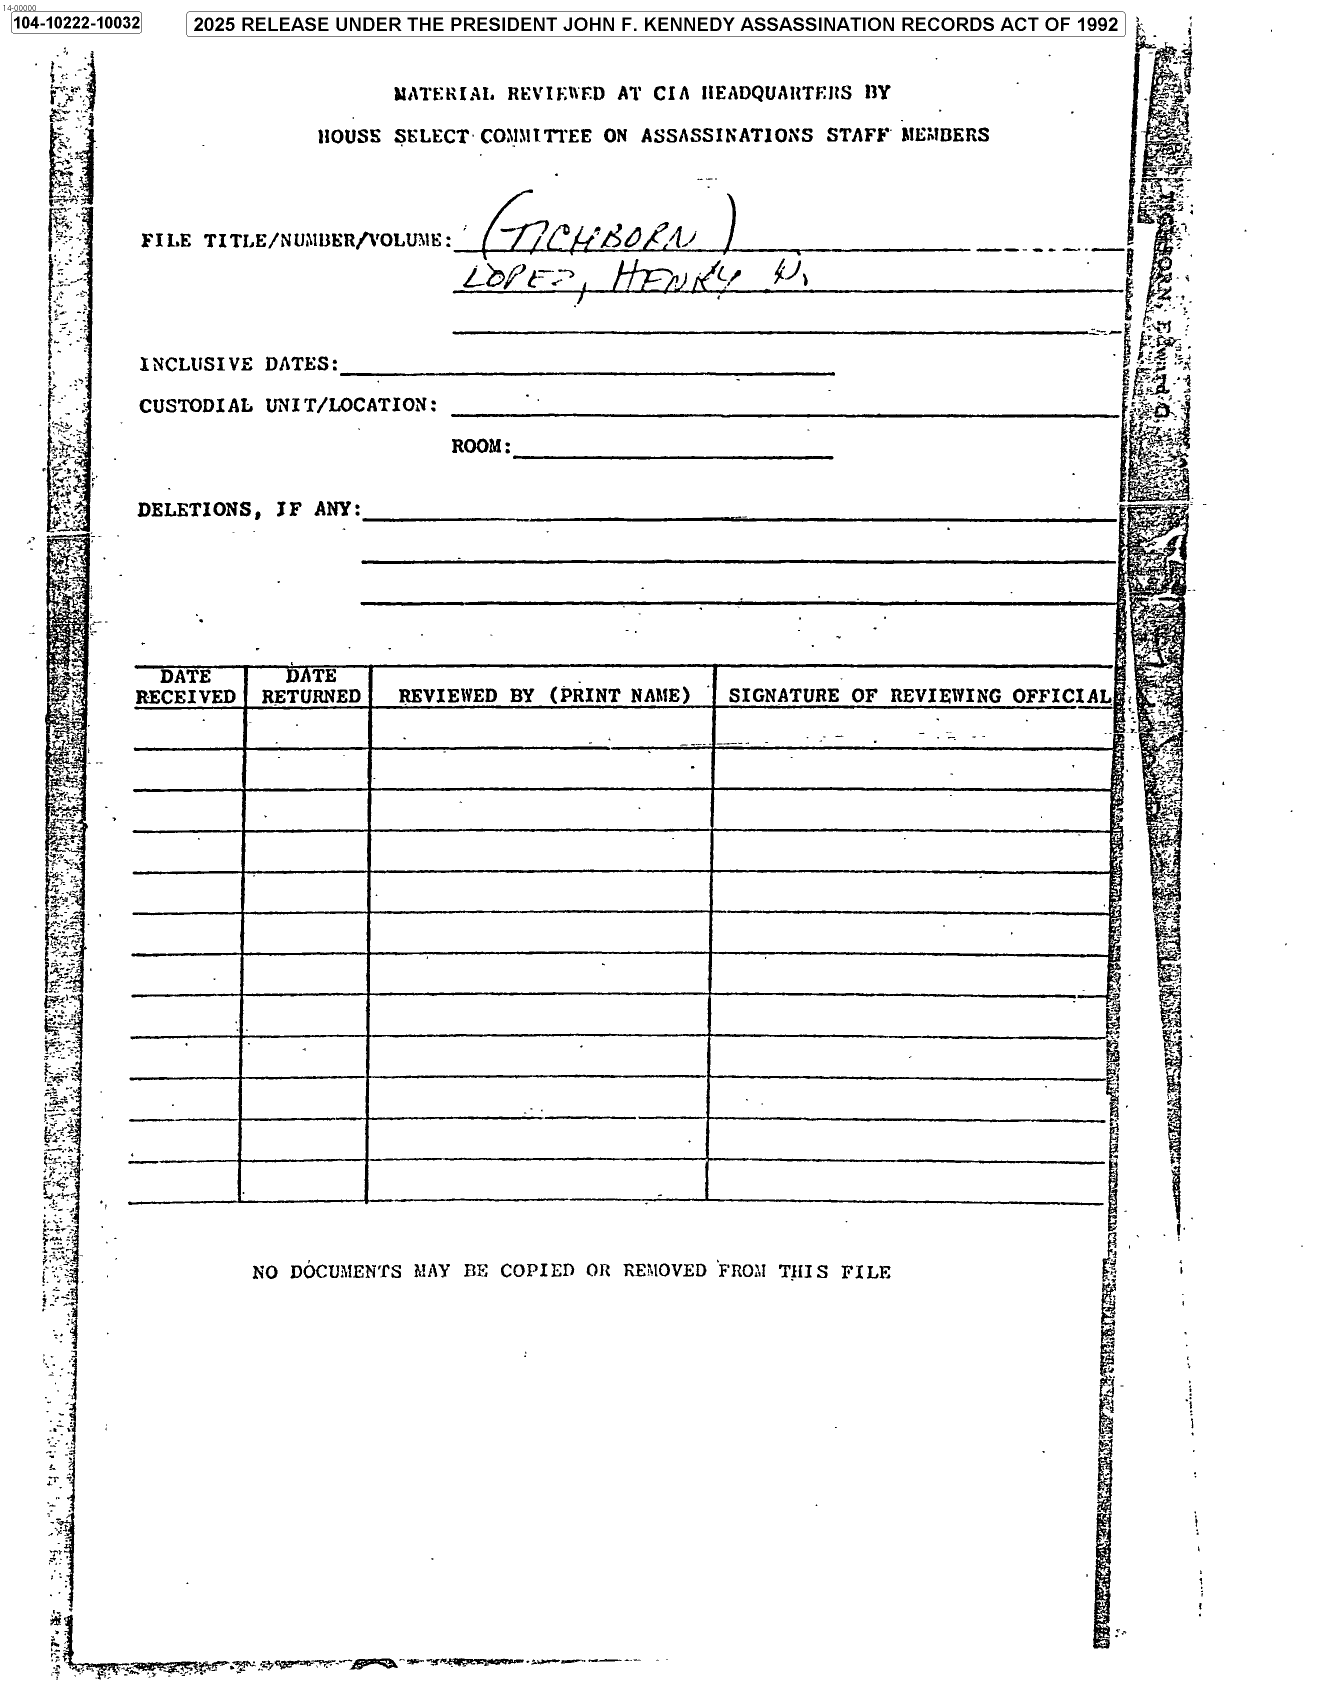 14-00000
104-10222-10032
2025 RELEASE UNDER THE PRESIDENT JOHN F. KENNEDY ASSASSINATION RECORDS ACT OF 1992
MATERIAL REVIEWED AT CIA HEADQUARTERS BY
HOUSE SELECT COMMITTEE ON ASSASSINATIONS STAFF MEMBERS
FILE TITLE/NUMBER/VOLUME: (TICHBORN)
LOPEZ, HENRY W.
INCLUSIVE DATES:
CUSTODIAL UNIT/LOCATION:
ROOM:
DELETIONS, IF ANY:
DATE RECEIVED
DATE RETURNED
REVIEWED BY (PRINT NAME)
SIGNATURE OF REVIEWING OFFICIAL
NO DOCUMENTS MAY BE COPIED OR REMOVED FROM THIS FILE
TICHBORN, EDWARD